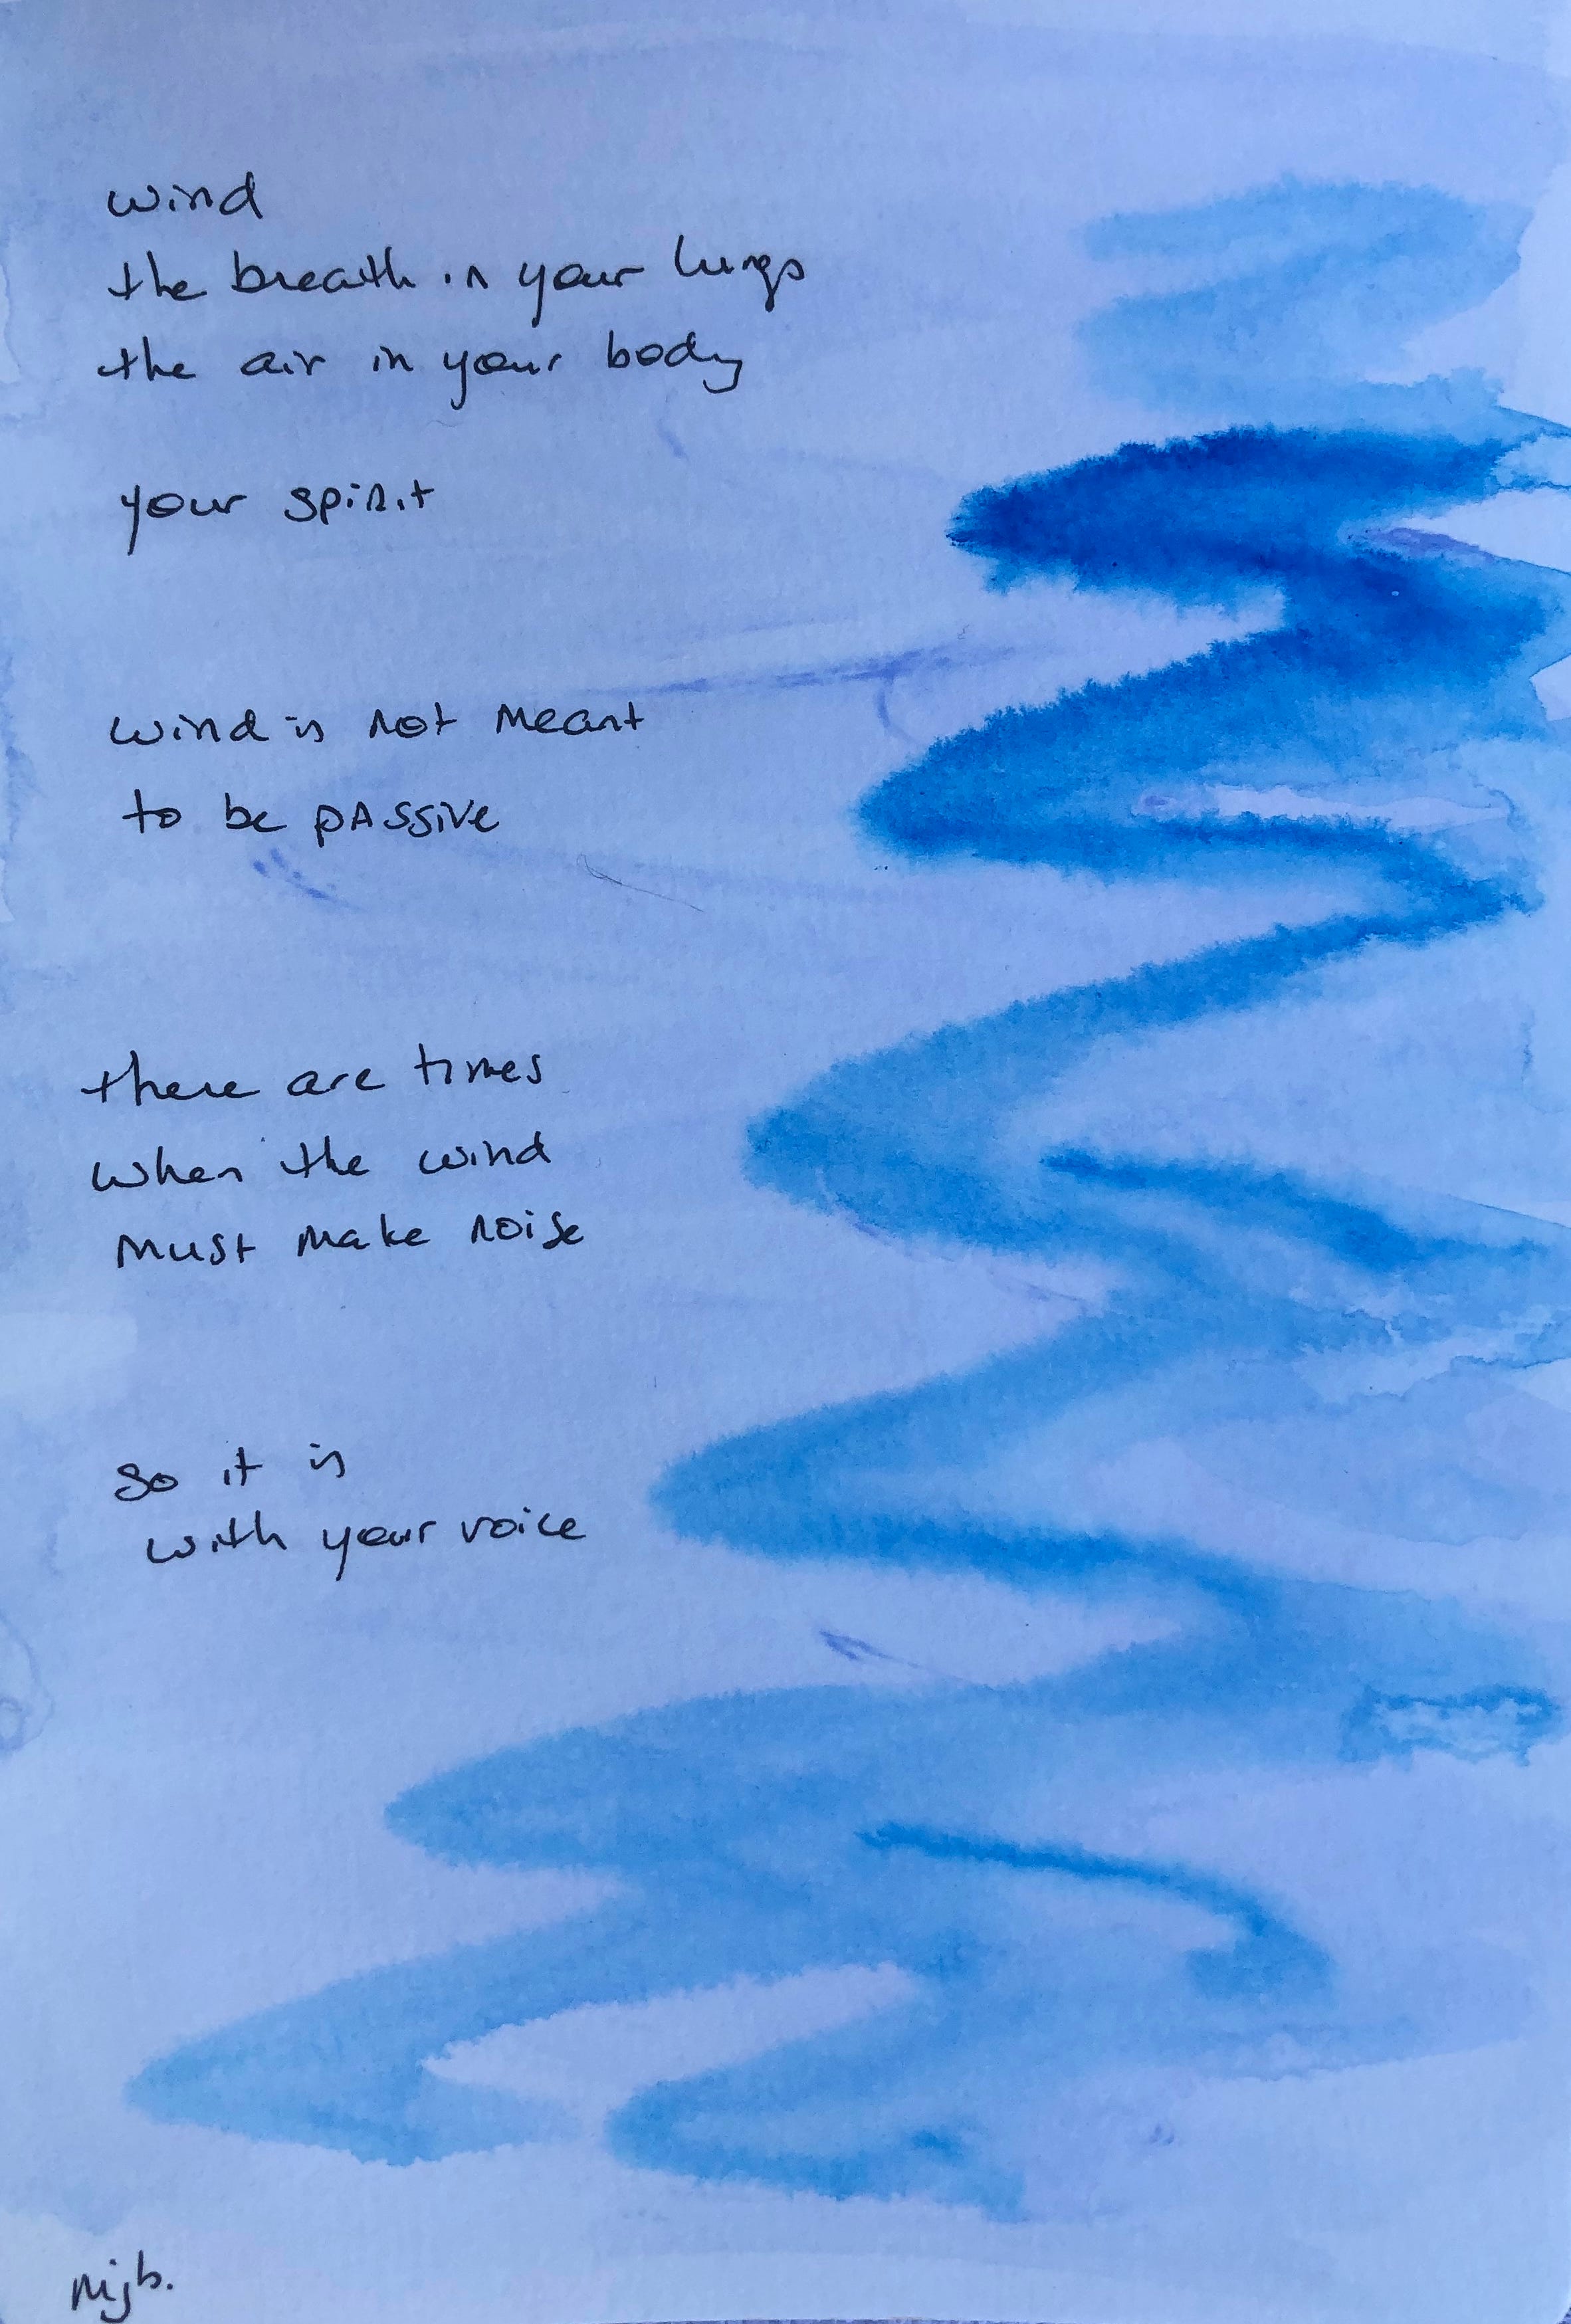 wind
the breath in your lungs
the air in your body
your spirit
wind is not meant
to be passive
there are times
when the wind
must make noise
so it is
with your voice
mjb.